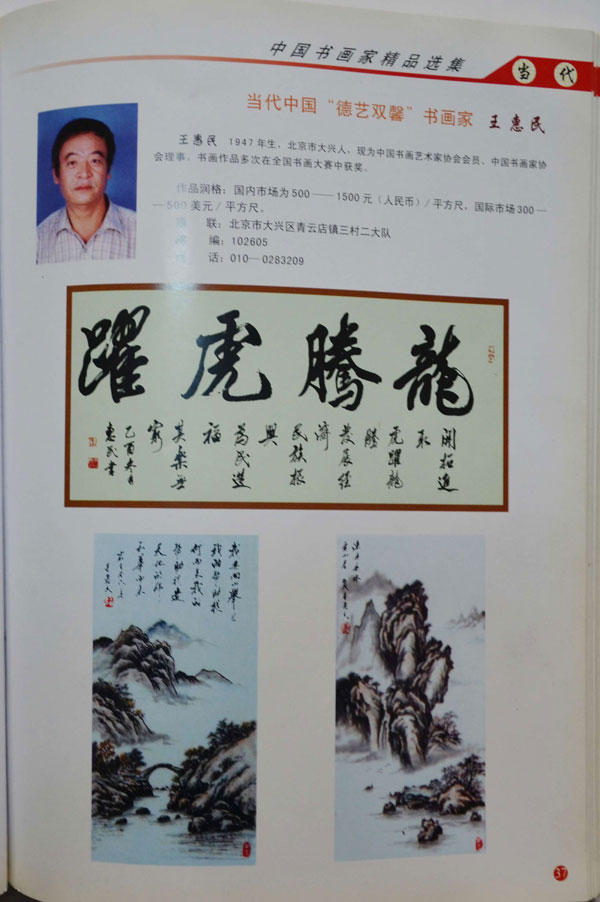 中国书画家精品选集
当代
当代中国“德艺双馨”书画家 王惠民
王惠民 1947年生，北京市大兴人，现为中国书画艺术家协会会员、中国书画家协
会理事。书画作品多次在全国书画大赛中获奖。
作品润格：国内市场为500——1500元（人民币）/平方尺，国际市场300—
—500美元/平方尺。
联：北京市大兴区青云店镇三村二大队
编：102605
话：010—0283209
龍騰虎躍
開拓進
取
虎躍龍
騰
發展經
濟
民族振
興
為民造
福
其樂無
窮
乙酉冬月
惠民書
37